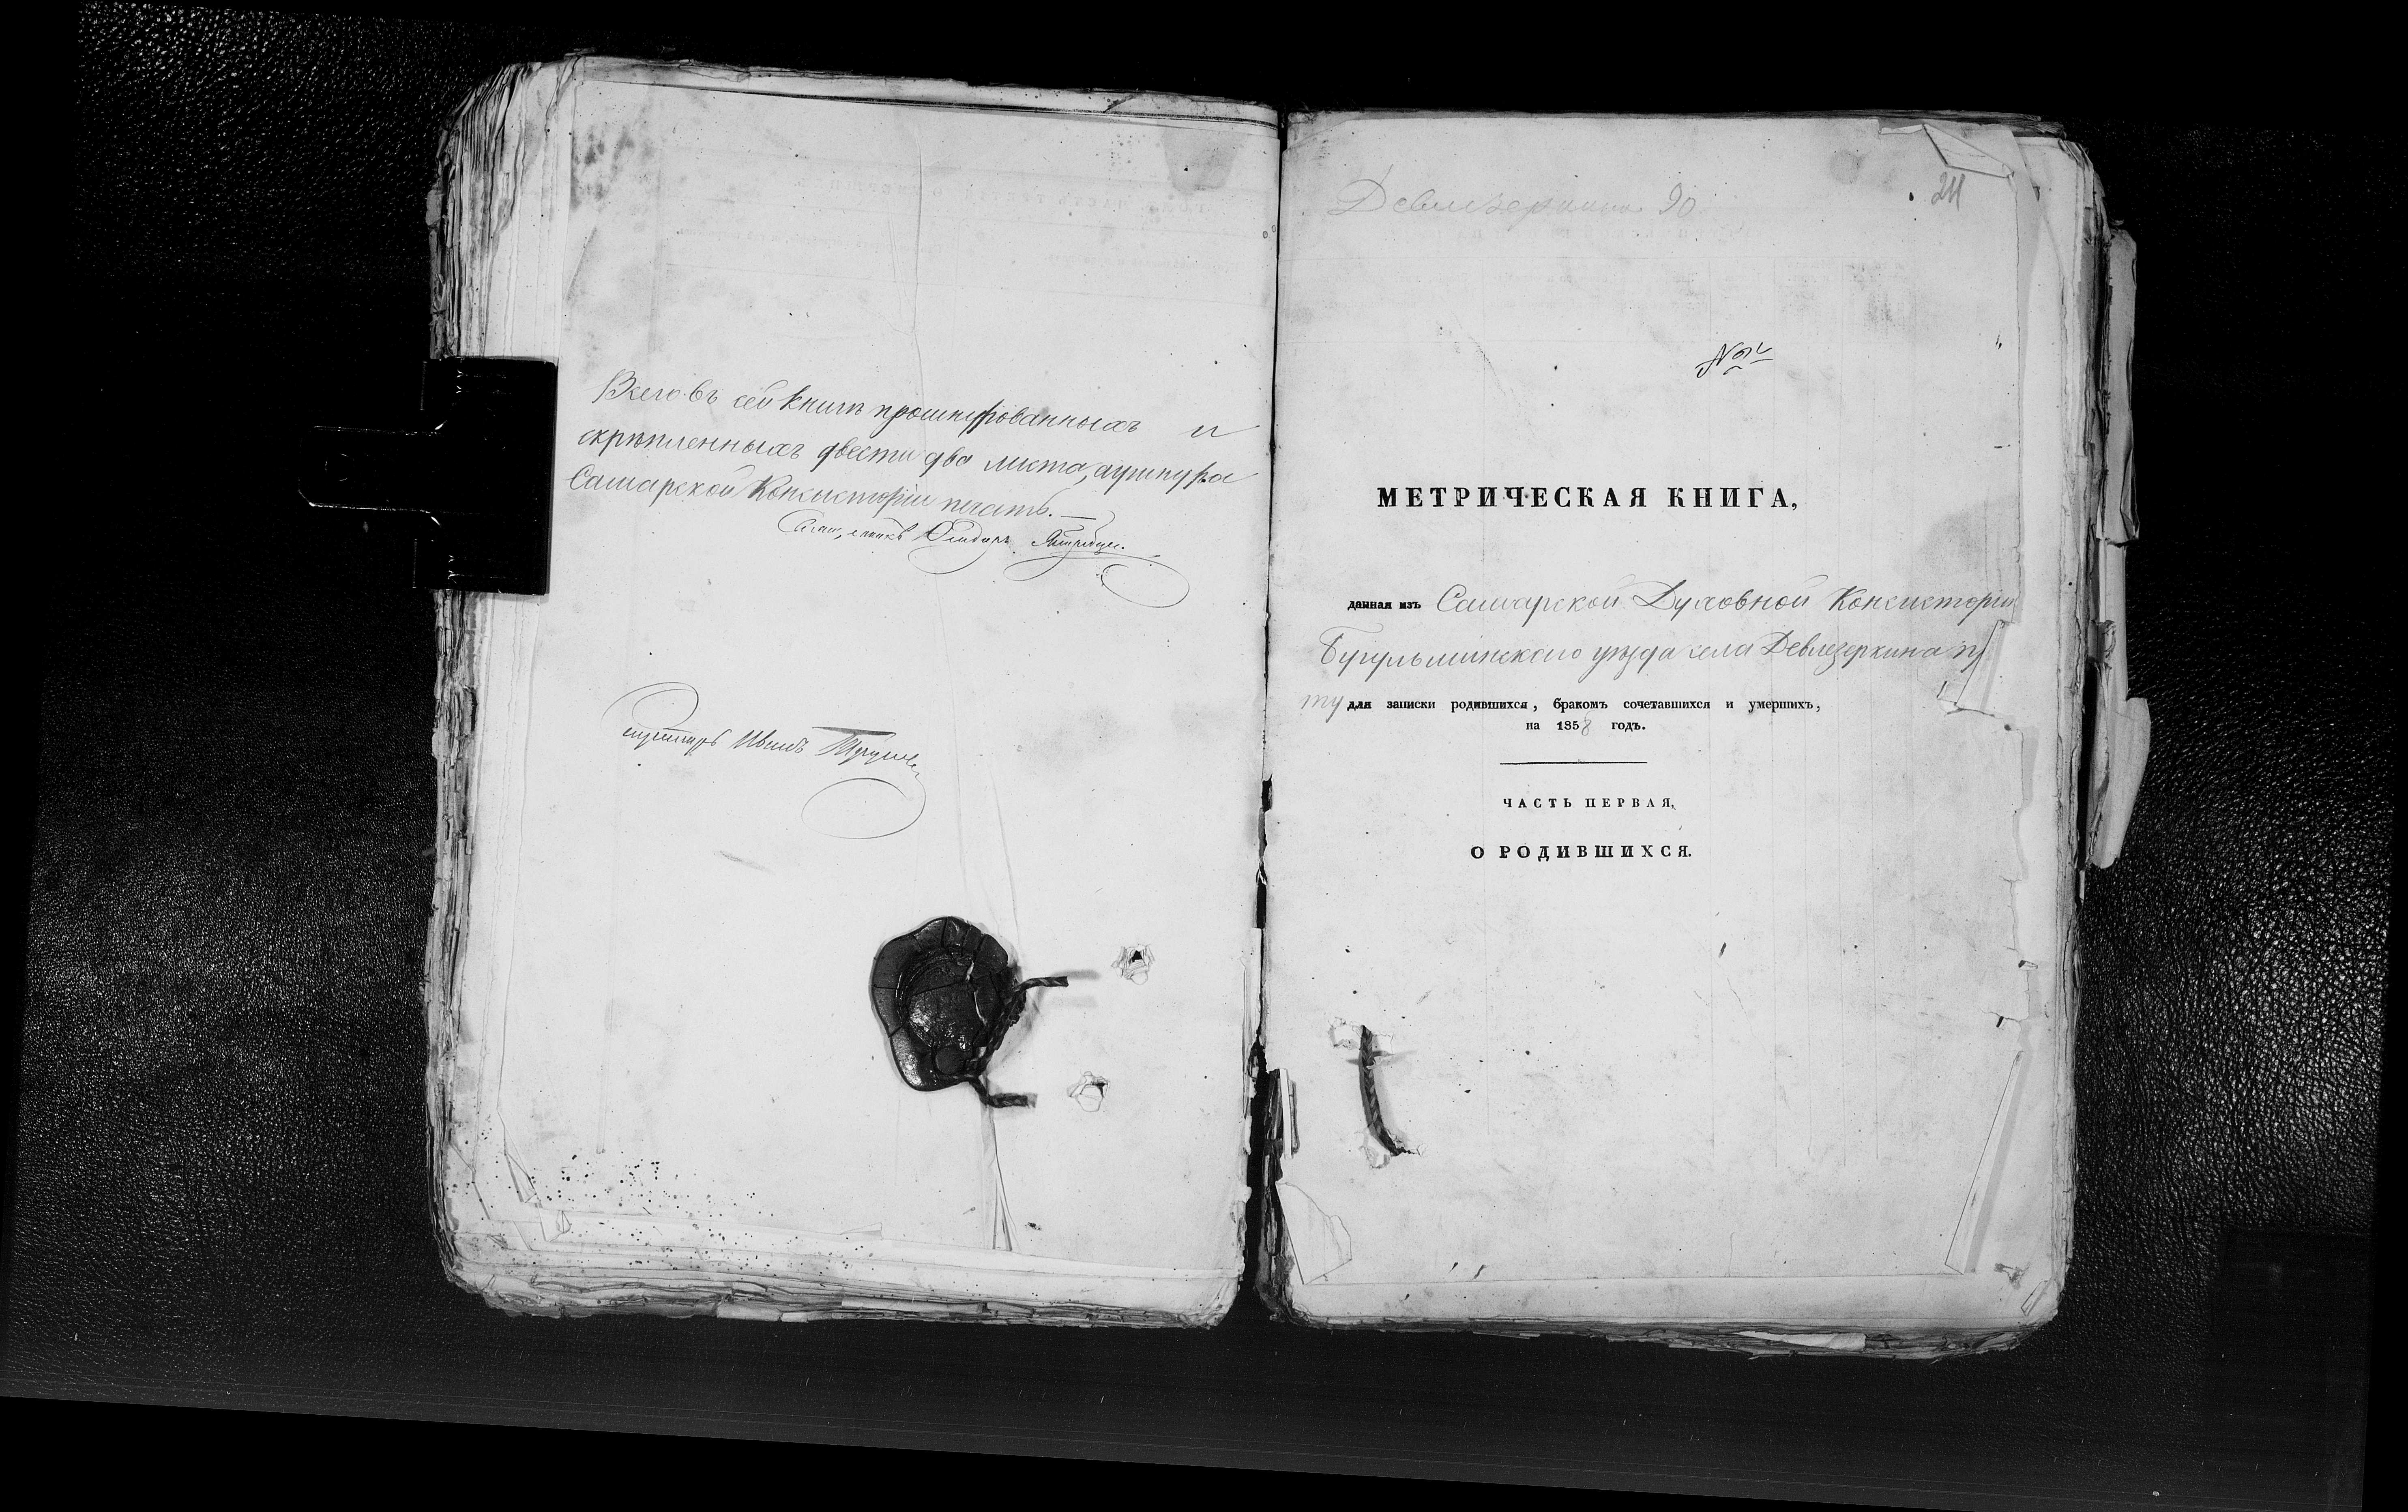 Всего въ сей книгѣ прошнурованныхъ и
скрѣпленныхъ двести два листа, а у шнура
Самарской Консисторіи печать.
Иванъ
Девлезеркино 90
211
МЕТРИЧЕСКАЯ КНИГА,
данная изъ Самарской Духовной Консисторіи
Бугульминскаго уѣзда села Девлезеркина
ту для записки родившихся, бракомъ сочетавшихся и умершихъ,
на 1858 годъ.
ЧАСТЬ ПЕРВАЯ,
О РОДИВШИХСЯ.